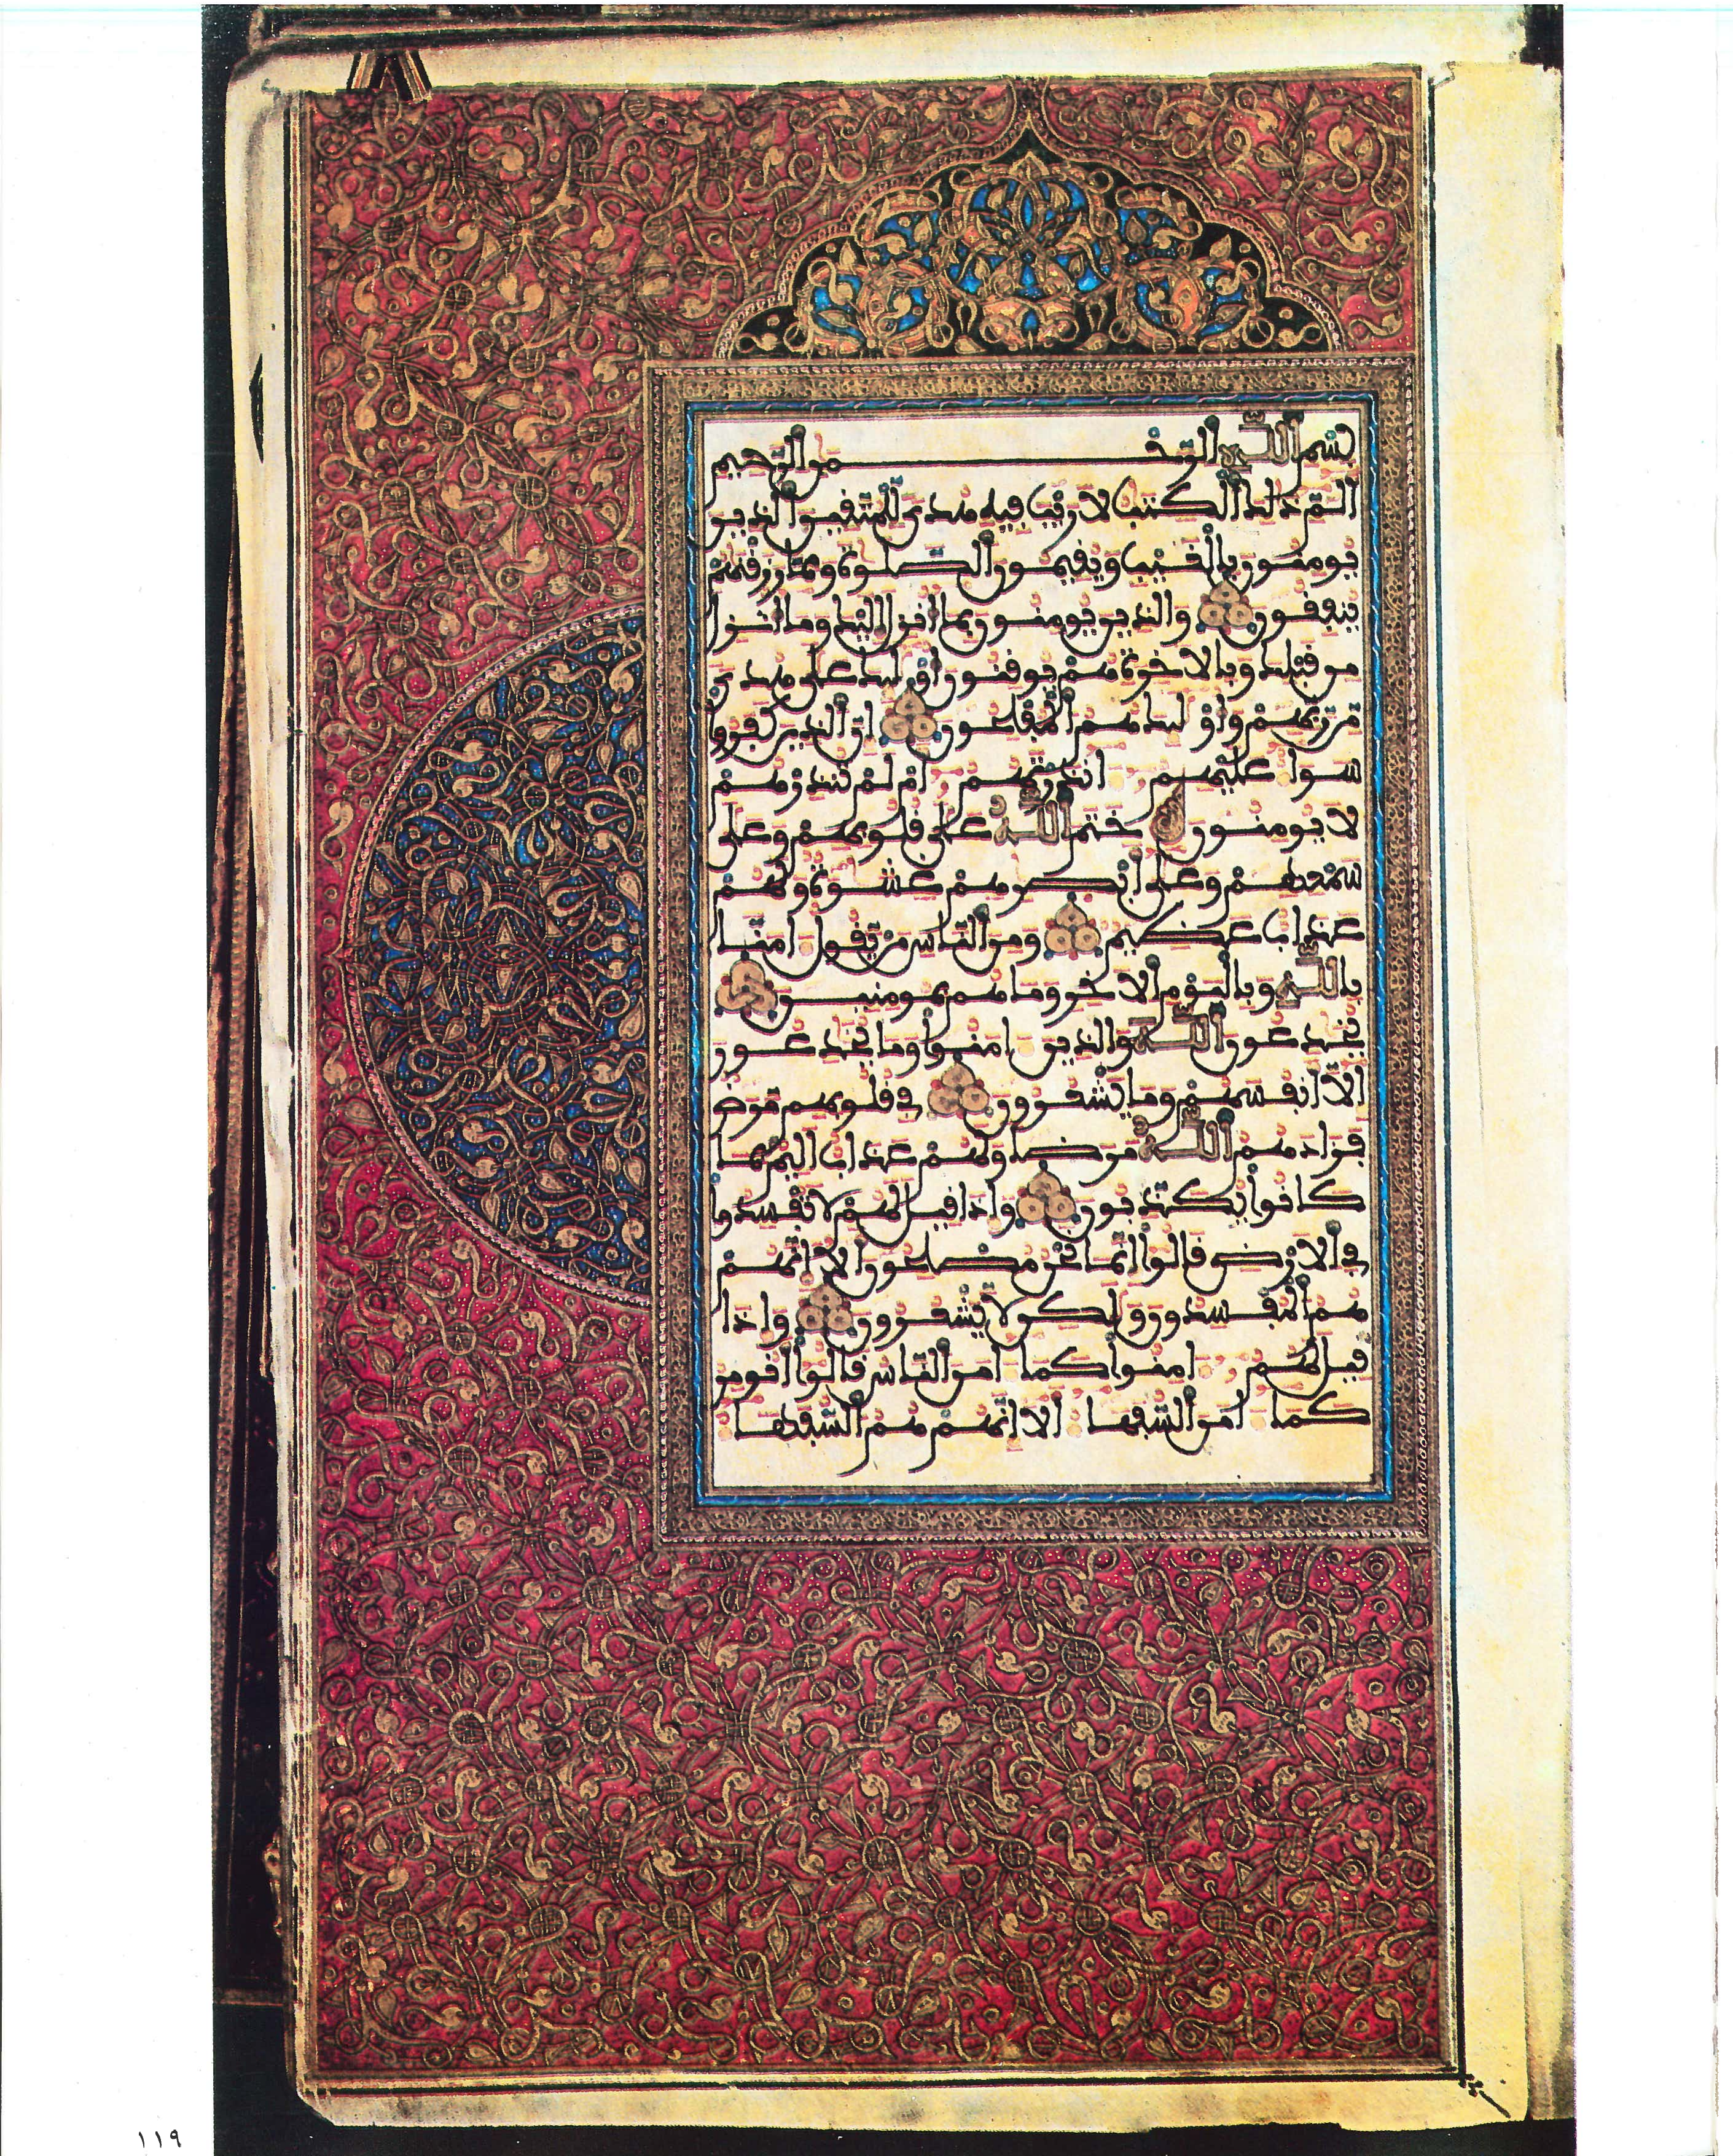 بسم الله الرحمن الرحيم
الم ذلك الكتب لا ريب فيه هدى للمتقين الذين
يومنون بالغيب ويقيمون الصلوة ومما رزقنهم
ينفقون والذين يومنون بما انزل اليك وما انزل
من قبلك وبالاخرة هم يوقنون اولئك على هدى
من ربهم واولئك هم المفلحون ان الذين كفروا
سوا عليهم انذرتهم ام لم تنذرهم
لا يومنون ختم الله على قلوبهم وعلى
سمعهم وعلى ابصرهم غشوة ولهم
عذاب عظيم ومن الناس من يقول امنا
بالله وباليوم الاخر وما هم بمومنين
يخدعون الله والذين امنوا وما يخدعون
الا انفسهم وما يشعرون في قلوبهم مرض
فزادهم الله مرضا ولهم عذاب اليم بما
كانوا يكذبون واذا قيل لهم لا تفسدوا
في الارض قالوا انما نحن مصلحون الا انهم
هم المفسدون ولكن لا يشعرون واذا
قيل لهم امنوا كما امن الناس قالوا انومن
كما امن السفها الا انهم هم السفها
١١٩